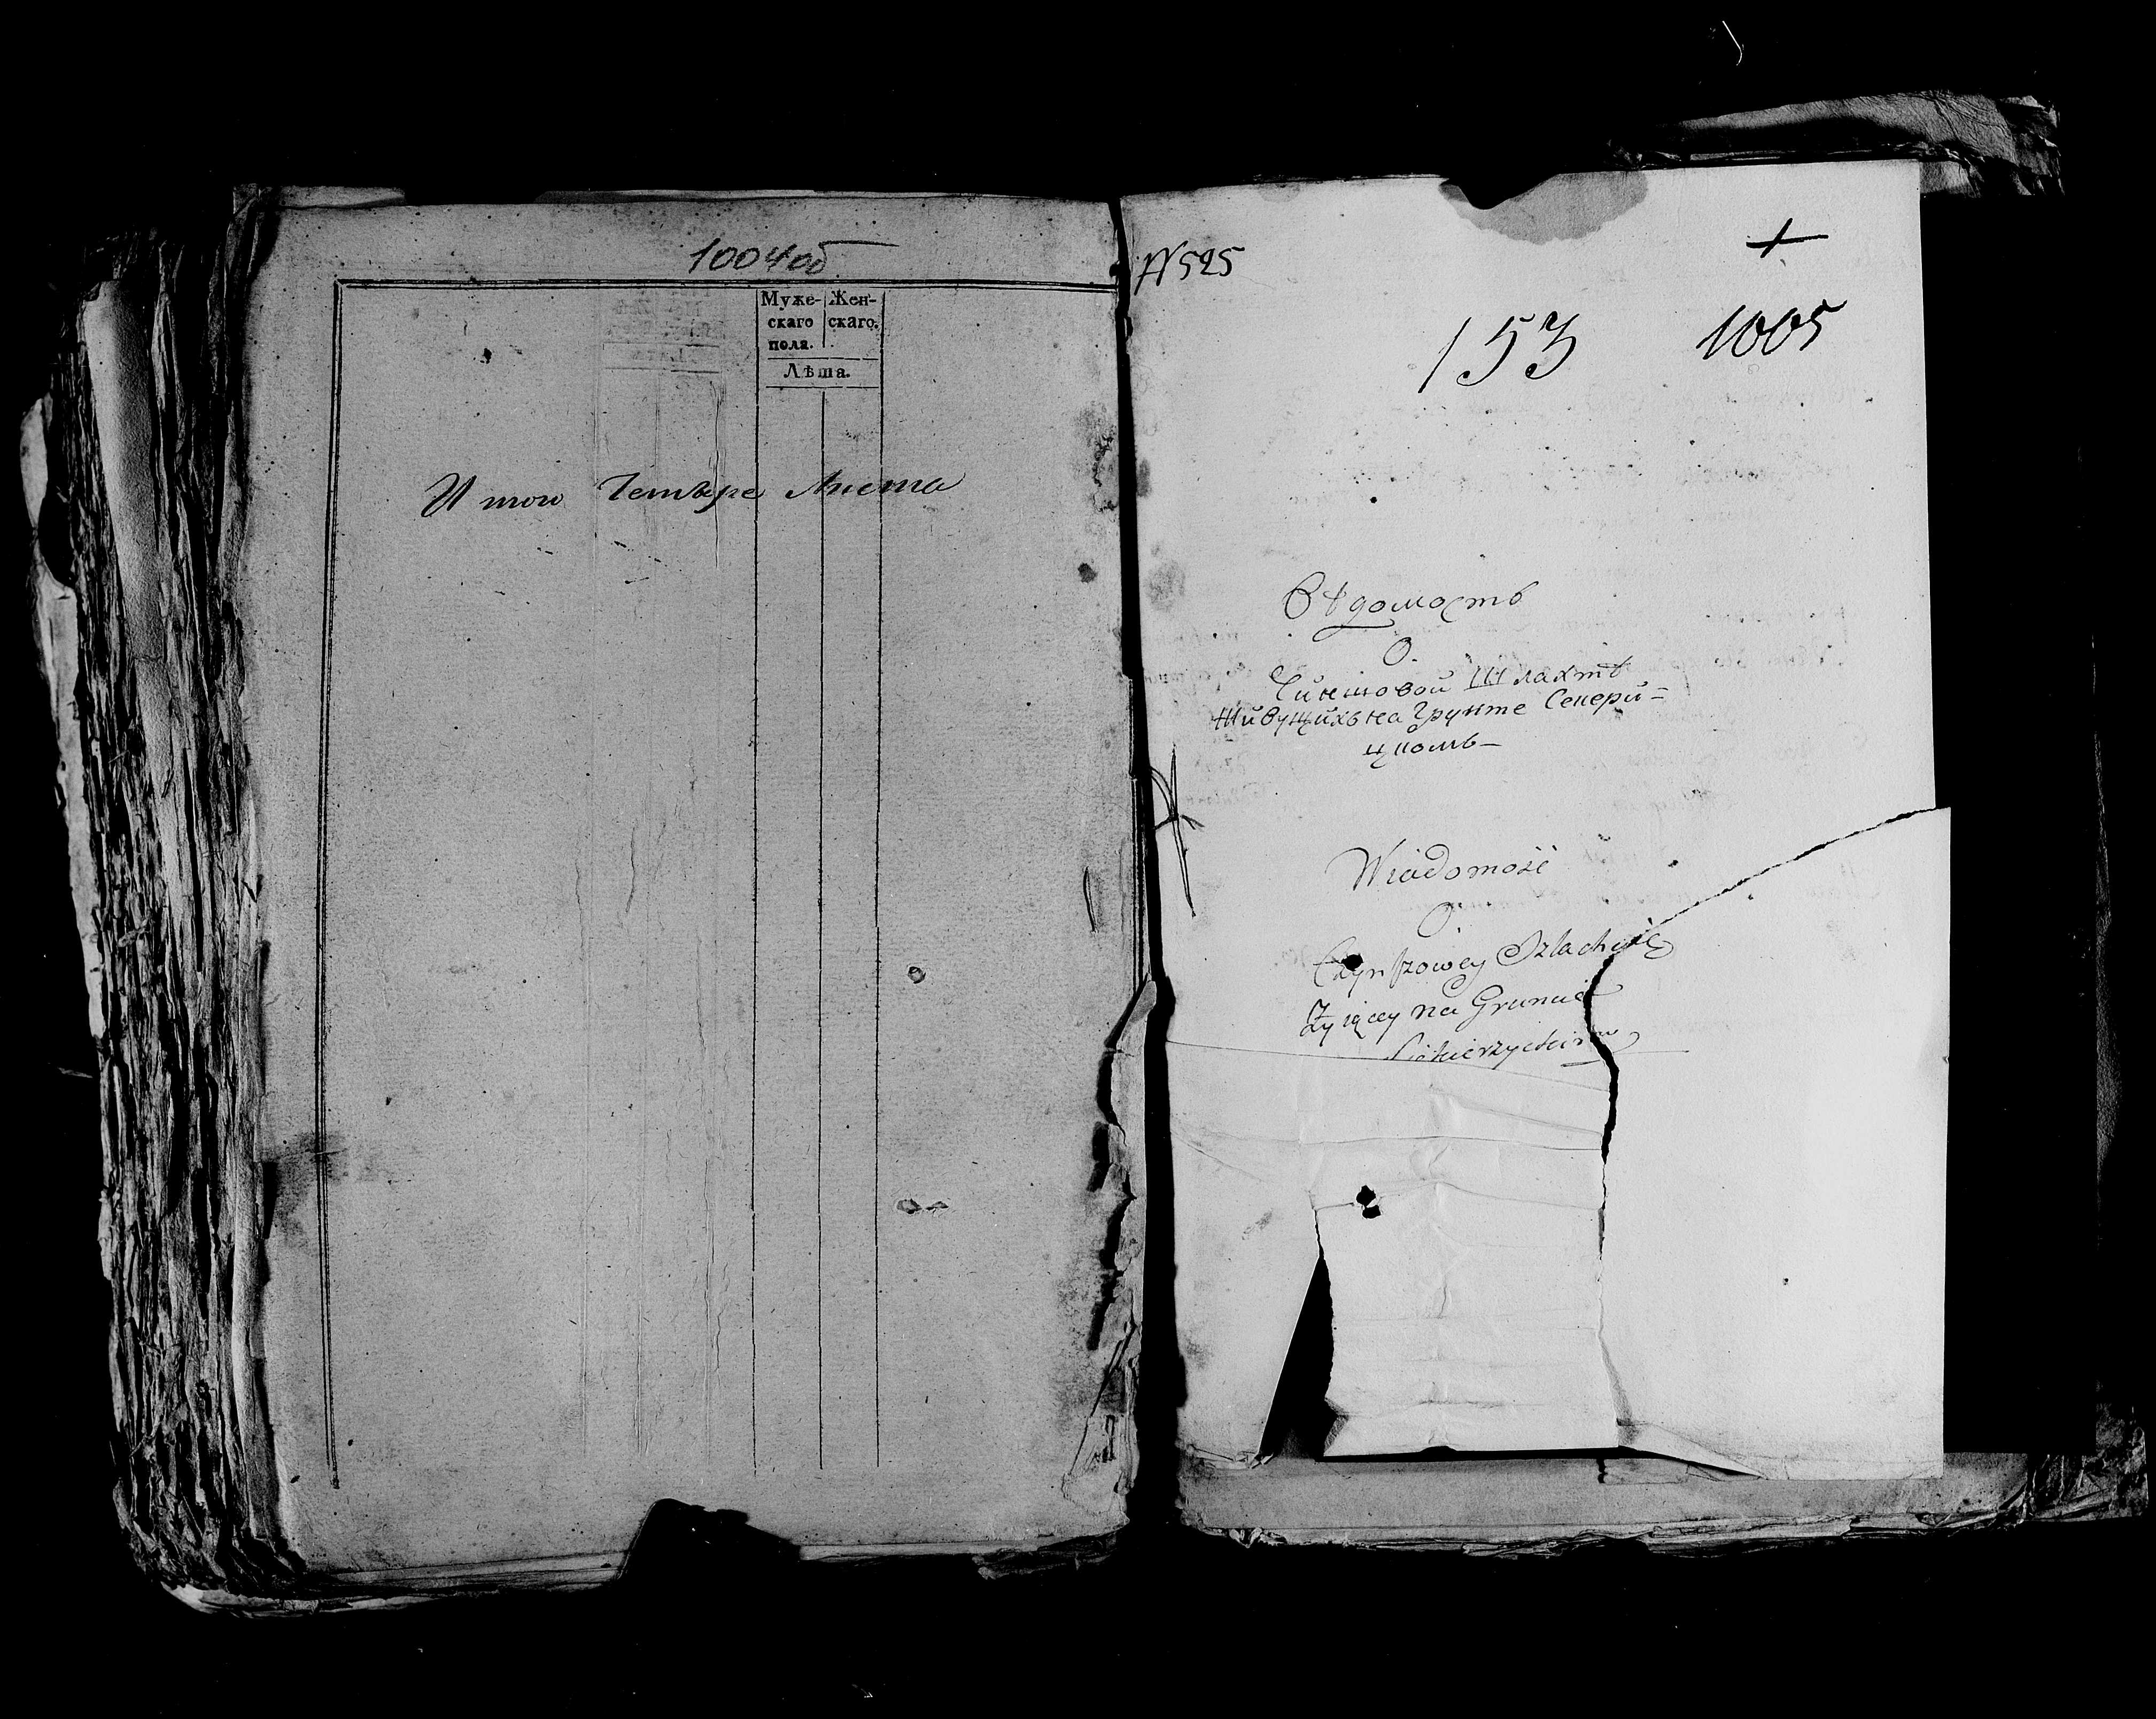 1004об
Муже- Жен-
скаго скаго.
пола.
Лѣта.
И того Четыре Листа
N 525
+
153 1005
Вѣдомость
О
Чиншовой Шлахтѣ
Живущихъ на Грунте Секери=
цкомъ
Wiadomość
O
Czynszowey Szlachcie
Zyiącey na Gruncie
Siekierzyckim